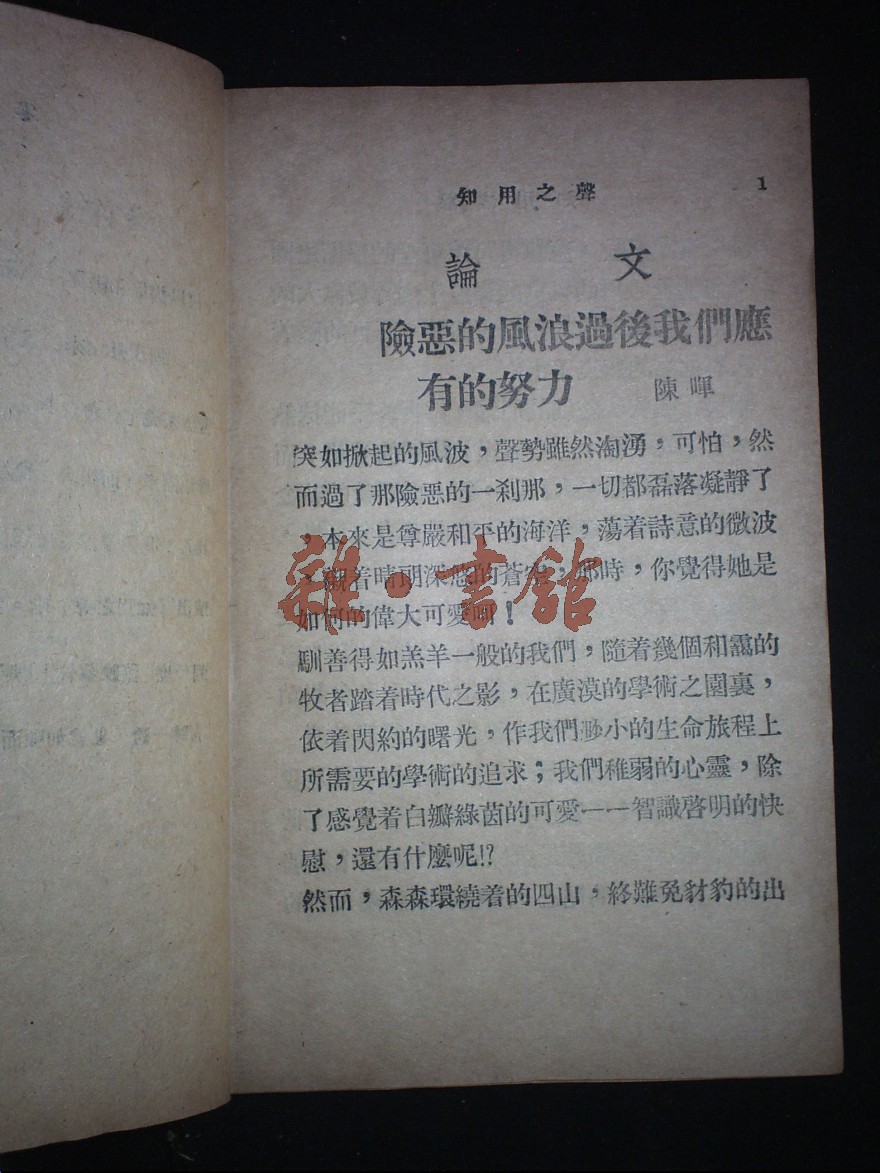 知用之聲 1
論 文
險惡的風浪過後我們應
有的努力 陳暉
突如掀起的風波，聲勢雖然洶湧，可怕，然
而過了那險惡的一剎那，一切都磊落凝靜了
，本來是尊嚴和平的海洋，蕩着詩意的微波
，襯着晴朗深悠的蒼空，那時，你覺得她是
如何的偉大可愛啊！
馴善得如羔羊一般的我們，隨着幾個和靄的
牧者踏着時代之影，在廣漠的學術之園裏，
依着閃約的曙光，作我們渺小的生命旅程上
所需要的學術的追求；我們稚弱的心靈，除
了感覺着白瓣綠茵的可愛——智識啓明的快
慰，還有什麼呢!?
然而，森森環繞着的四山，終難免豺豹的出
雜·書館